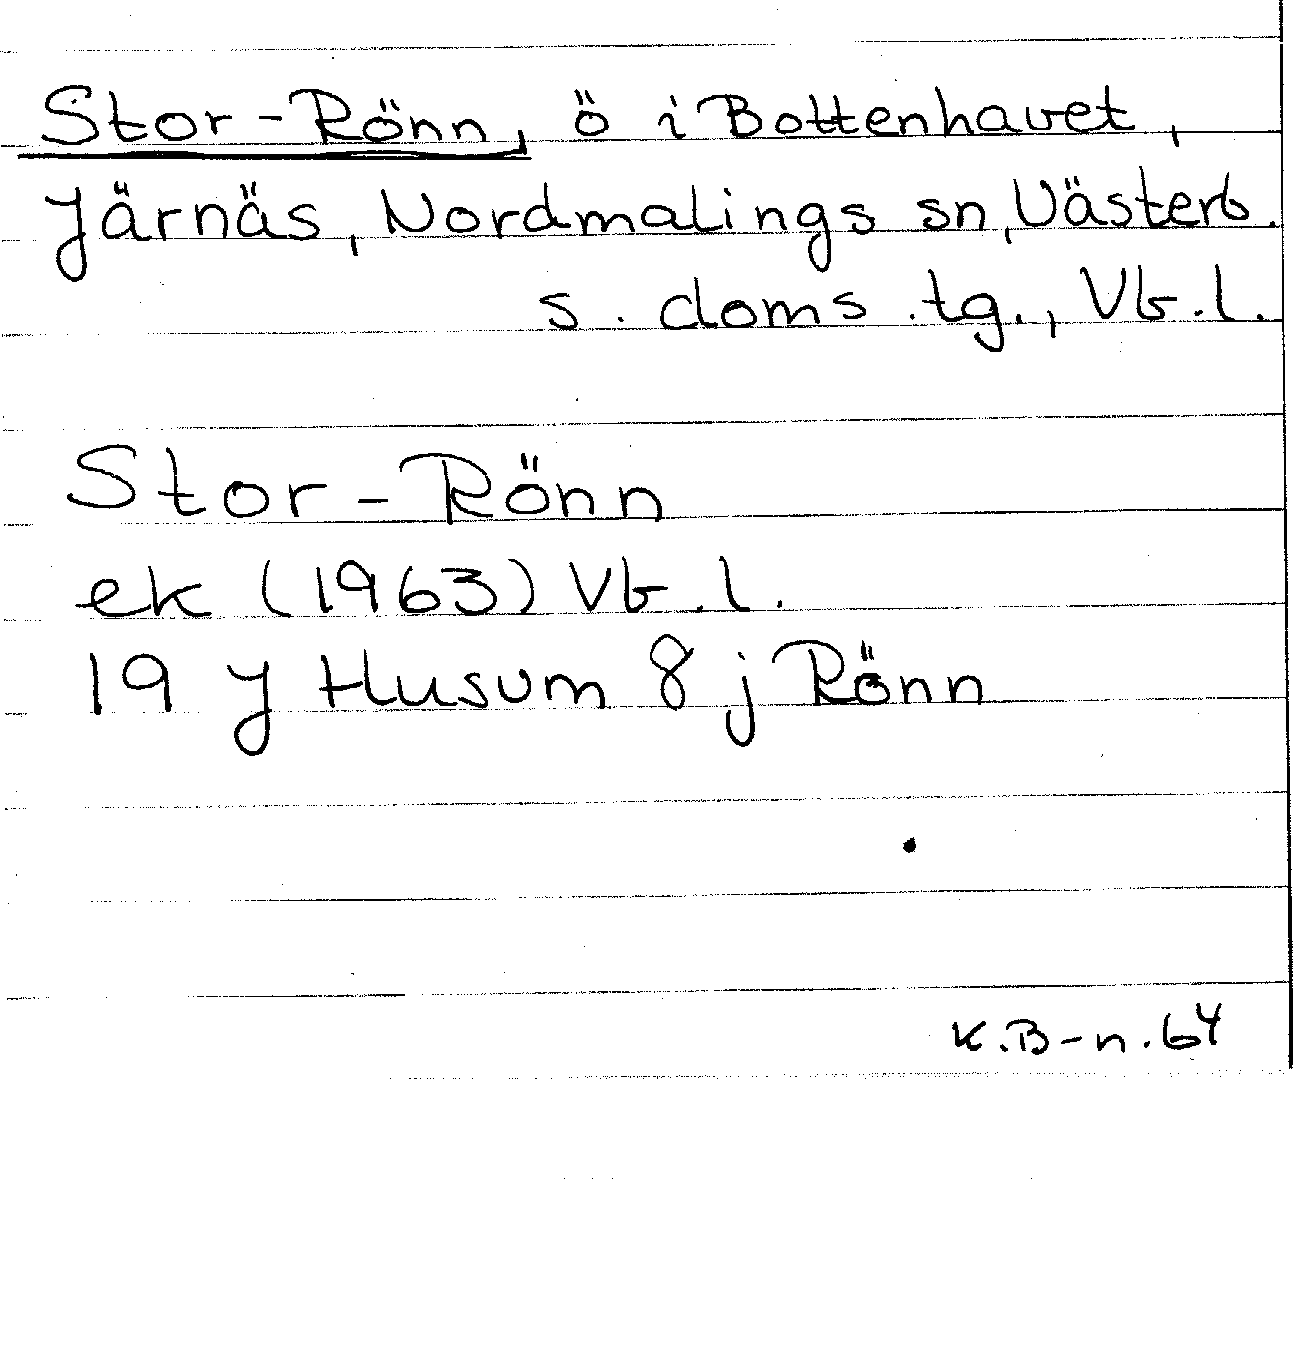 Stor-Rönn, ö i Bottenhavet,
Järnäs, Nordmalings sn, Västerb.
s. doms.tg., Vb.l.
Stor-Rönn
ek (1963) Vb.l.
19 J Husum 8 j Rönn
K.B-n.64